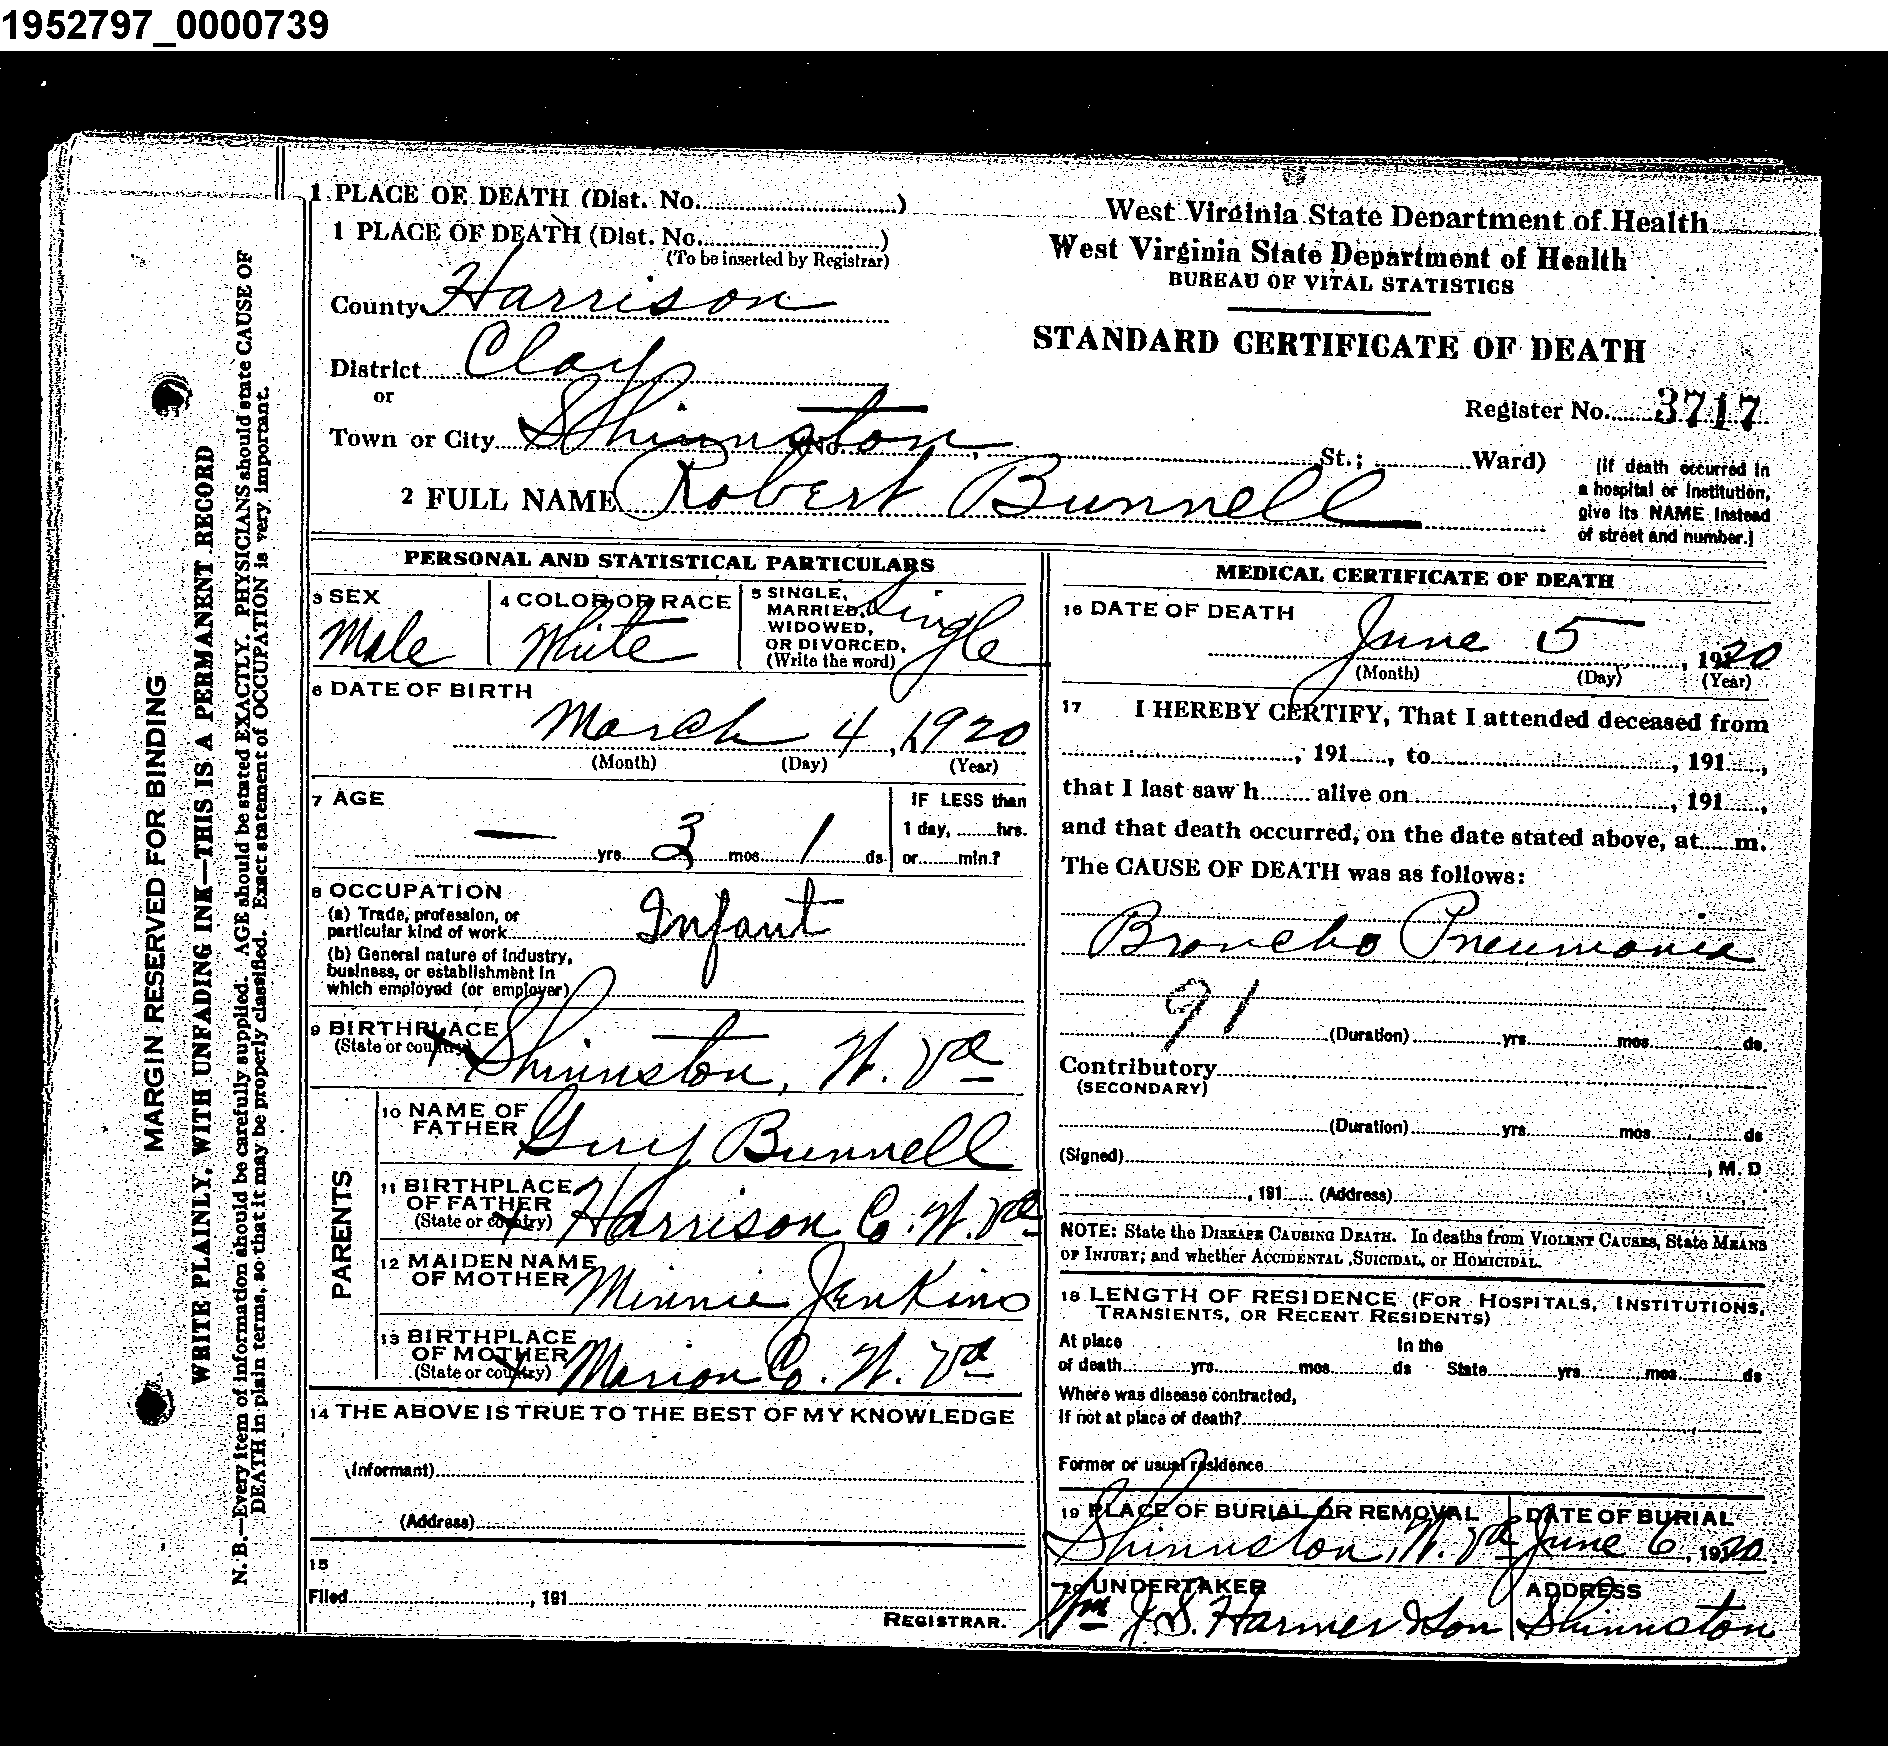 1952797_0000739
1 PLACE OF DEATH (Dist. No..........)
West Virginia State Department of Health
1 PLACE OF DEATH (Dist. No..........)
(To be inserted by Registrar)
County Harrison
District Clay
or
Town or City Shinnston, No. ..........St.; ..........Ward)
2 FULL NAME Robert Bunnell
West Virginia State Department of Health
BUREAU OF VITAL STATISTICS
STANDARD CERTIFICATE OF DEATH
Register No. 3717
(If death occurred in
a hospital or institution,
give its NAME instead
of street and number.)
PERSONAL AND STATISTICAL PARTICULARS
3 SEX
Male
4 COLOR OR RACE
White
5 SINGLE,
MARRIED,
WIDOWED,
OR DIVORCED,
(Write the word)
Single
6 DATE OF BIRTH
March 4, 1920
(Month) (Day) (Year)
7 AGE
— yrs. 3 mos. 1 ds.
IF LESS than
1 day, ........hrs.
or........min.?
8 OCCUPATION
(a) Trade, profession, or
particular kind of work
Infant
(b) General nature of industry,
business, or establishment in
which employed (or employer)
9 BIRTHPLACE
(State or country)
Shinnston, W. Va
PARENTS
10 NAME OF
FATHER
Guy Bunnell
11 BIRTHPLACE
OF FATHER
(State or country)
Harrison Co. W. Va
12 MAIDEN NAME
OF MOTHER
Minnie Jenkins
13 BIRTHPLACE
OF MOTHER
(State or country)
Marion Co. W. Va
14 THE ABOVE IS TRUE TO THE BEST OF MY KNOWLEDGE
(Informant)
(Address)
15
Filed.........., 191
REGISTRAR.
MEDICAL CERTIFICATE OF DEATH
16 DATE OF DEATH
June 5, 1920
(Month) (Day) (Year)
17 I HEREBY CERTIFY, That I attended deceased from
.........., 191....., to.........., 191.....,
that I last saw h........ alive on.........., 191.....,
and that death occurred, on the date stated above, at......m.
The CAUSE OF DEATH was as follows:
Broncho Pneumonia
91
(Duration)..........yrs..........mos..........ds.
Contributory
(SECONDARY)
(Duration)..........yrs..........mos..........ds
(Signed).........., M. D
.........., 191...... (Address)
NOTE: State the DISEASE CAUSING DEATH. In deaths from VIOLENT CAUSES, State MEANS
OF INJURY; and whether ACCIDENTAL, SUICIDAL, or HOMICIDAL.
18 LENGTH OF RESIDENCE (FOR HOSPITALS, INSTITUTIONS,
TRANSIENTS, OR RECENT RESIDENTS)
At place In the
of death..........yrs..........mos..........ds State..........yrs..........mos..........ds
Where was disease contracted,
If not at place of death?
Former or usual residence
19 PLACE OF BURIAL OR REMOVAL
Shinnston, W. Va
DATE OF BURIAL
June 6, 1920
20 UNDERTAKER
Wm J. S. Harmer & Son
ADDRESS
Shinnston
MARGIN RESERVED FOR BINDING
WRITE PLAINLY, WITH UNFADING INK—THIS IS A PERMANENT RECORD
N. B.—Every item of information should be carefully supplied. AGE should be stated EXACTLY. PHYSICIANS should state CAUSE OF
DEATH in plain terms, so that it may be properly classified. Exact statement of OCCUPATION is very important.